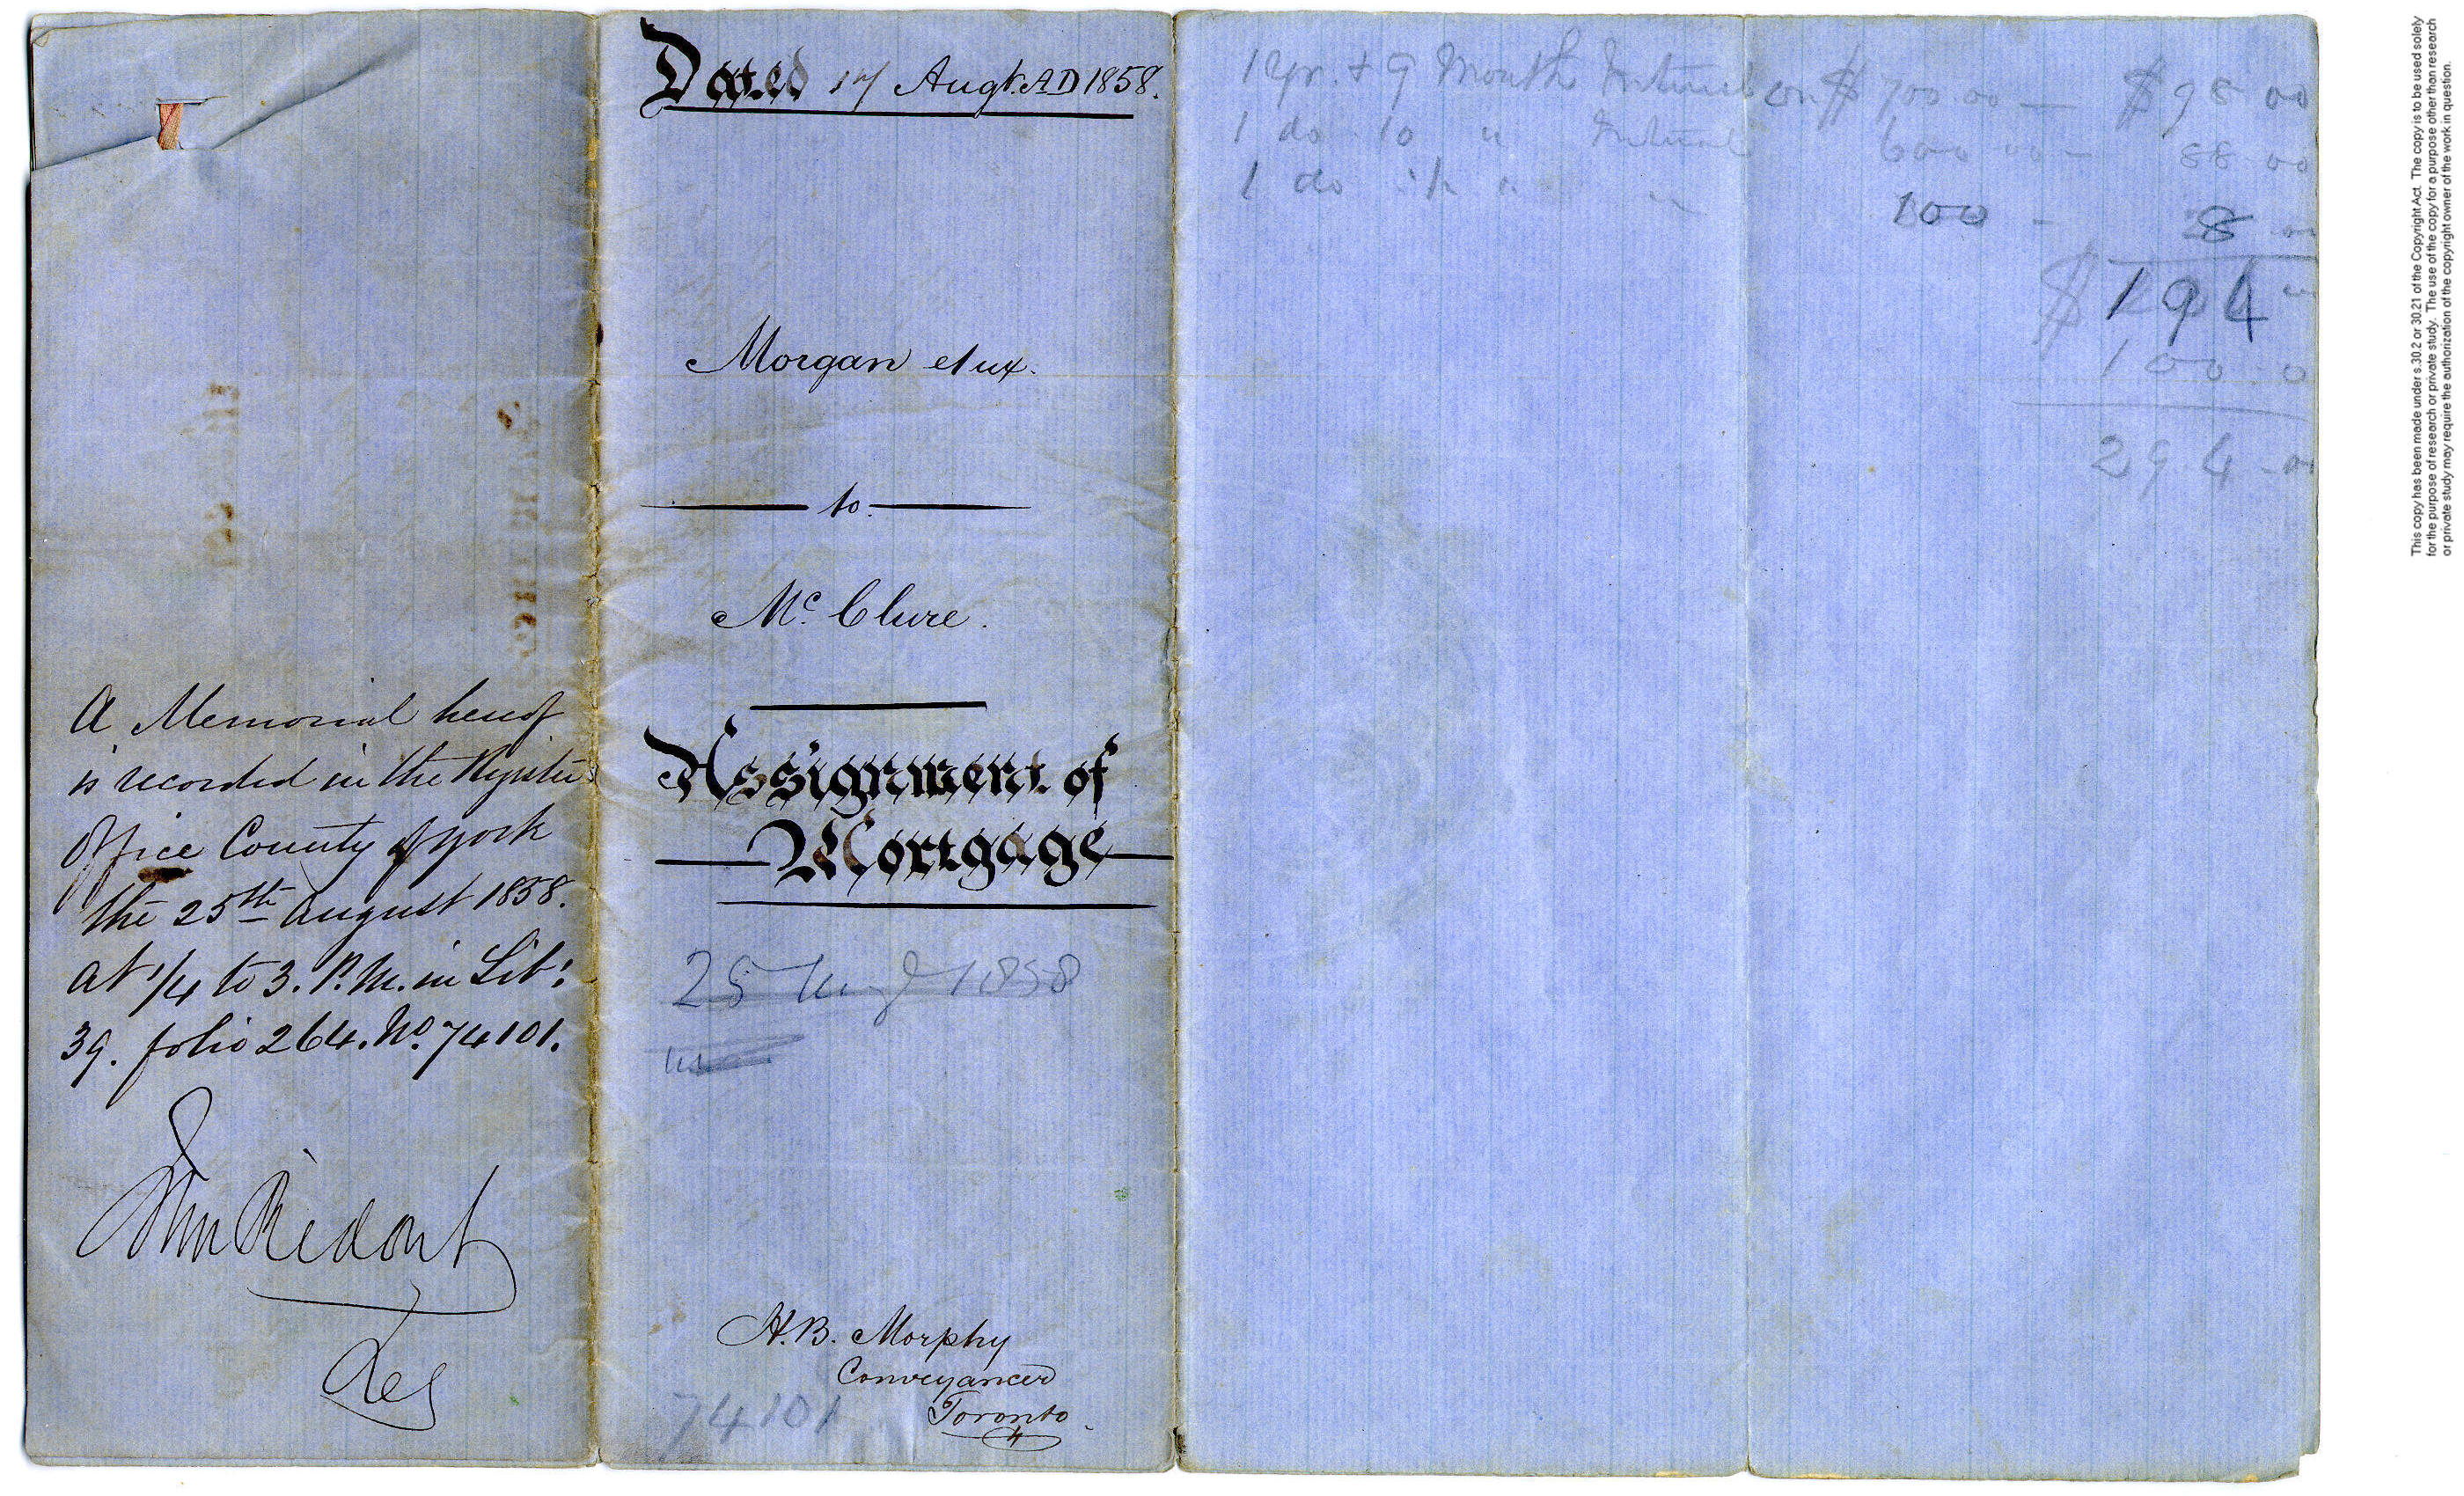 A Memorial hereof
is recorded in the Register
Office County of York
the 25th August 1858.
at 1/4 to 3. P.M. in Lib:
39. folio 264. No. 74101.
John Ridout
Reg
Dated 17 Augt. AD 1858.
Morgan et ux.
to
Mc. Clure.
Assignment of
Mortgage
25 Aug 1858
H.B. Morphy
Conveyancer
Toronto
74101
1 yr. + 9 Month Interest on $ 700.00 — $98 00
1 do 10 " Interest 600 00 - 88 00
1 do " " 100 - 8
$194
100 0
294
This copy has been made under s.30.2 or 30.21 of the Copyright Act. The copy is to be used solely
for the purpose of research or private study. The use of the copy for a purpose other than research
or private study may require the authorization of the copyright owner of the work in question.